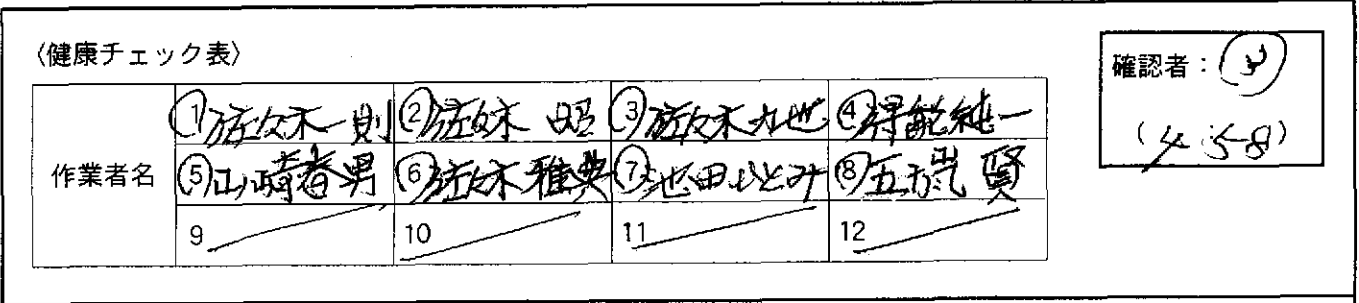 〈健康チェック表〉
確認者：
(4.5-8)
作業者名
①佐々木一則 ②佐々木 昭 ③佐々木力也 ④得能純一
⑤山崎春男 ⑥佐々木雅典 ⑦池田ひとみ ⑧五十嵐 賢
9 10 11 12